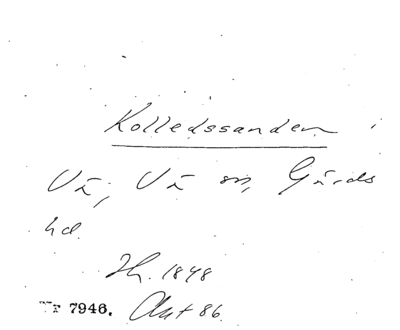 Kolledssanden i
Vä, Vä sn, Gärds
hd.
Jh. 1848
Nr 7946. Akt 86.